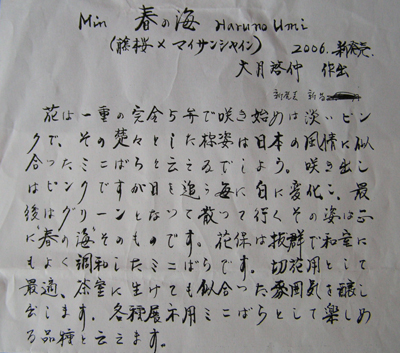 Min 春の海 Haruno Umi
(藤桜×マイサンシャイン) 2006.新発売.
大月啓仲 作出
新発売 新苗
花は一重の完全5弁で咲き始めは淡いピン
クで、その楚々とした株姿は日本の風情に似
合ったミニばらと云えるでしょう。咲き出し
はピンクですが日を追う毎に白に変化し、最
後はグリーンとなって散って行くその姿は正
に"春の海"そのものです。花保は抜群で和室に
もよく調和したミニばらです。切花用として
最適、茶室に生けても似合った雰囲気を醸し
出します。各種展示用ミニばらとして楽しめ
る品種と云えます。